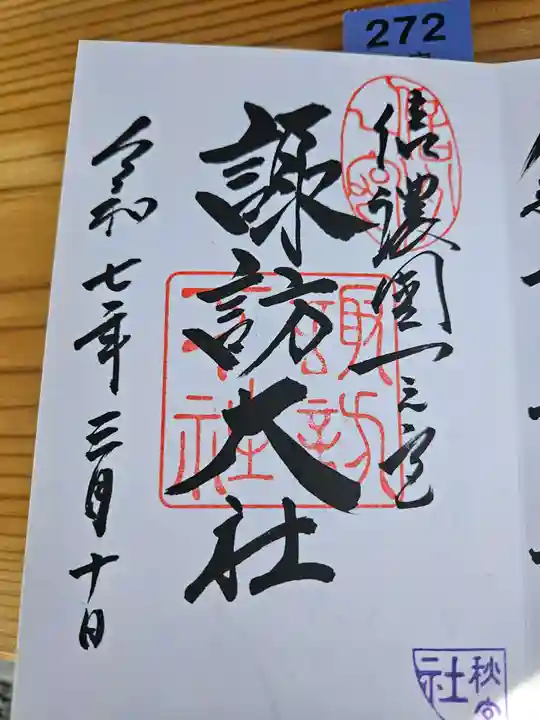 272
信濃國一之宮
諏訪大社
令和七年三月十日
諏訪大社
秋宮
社